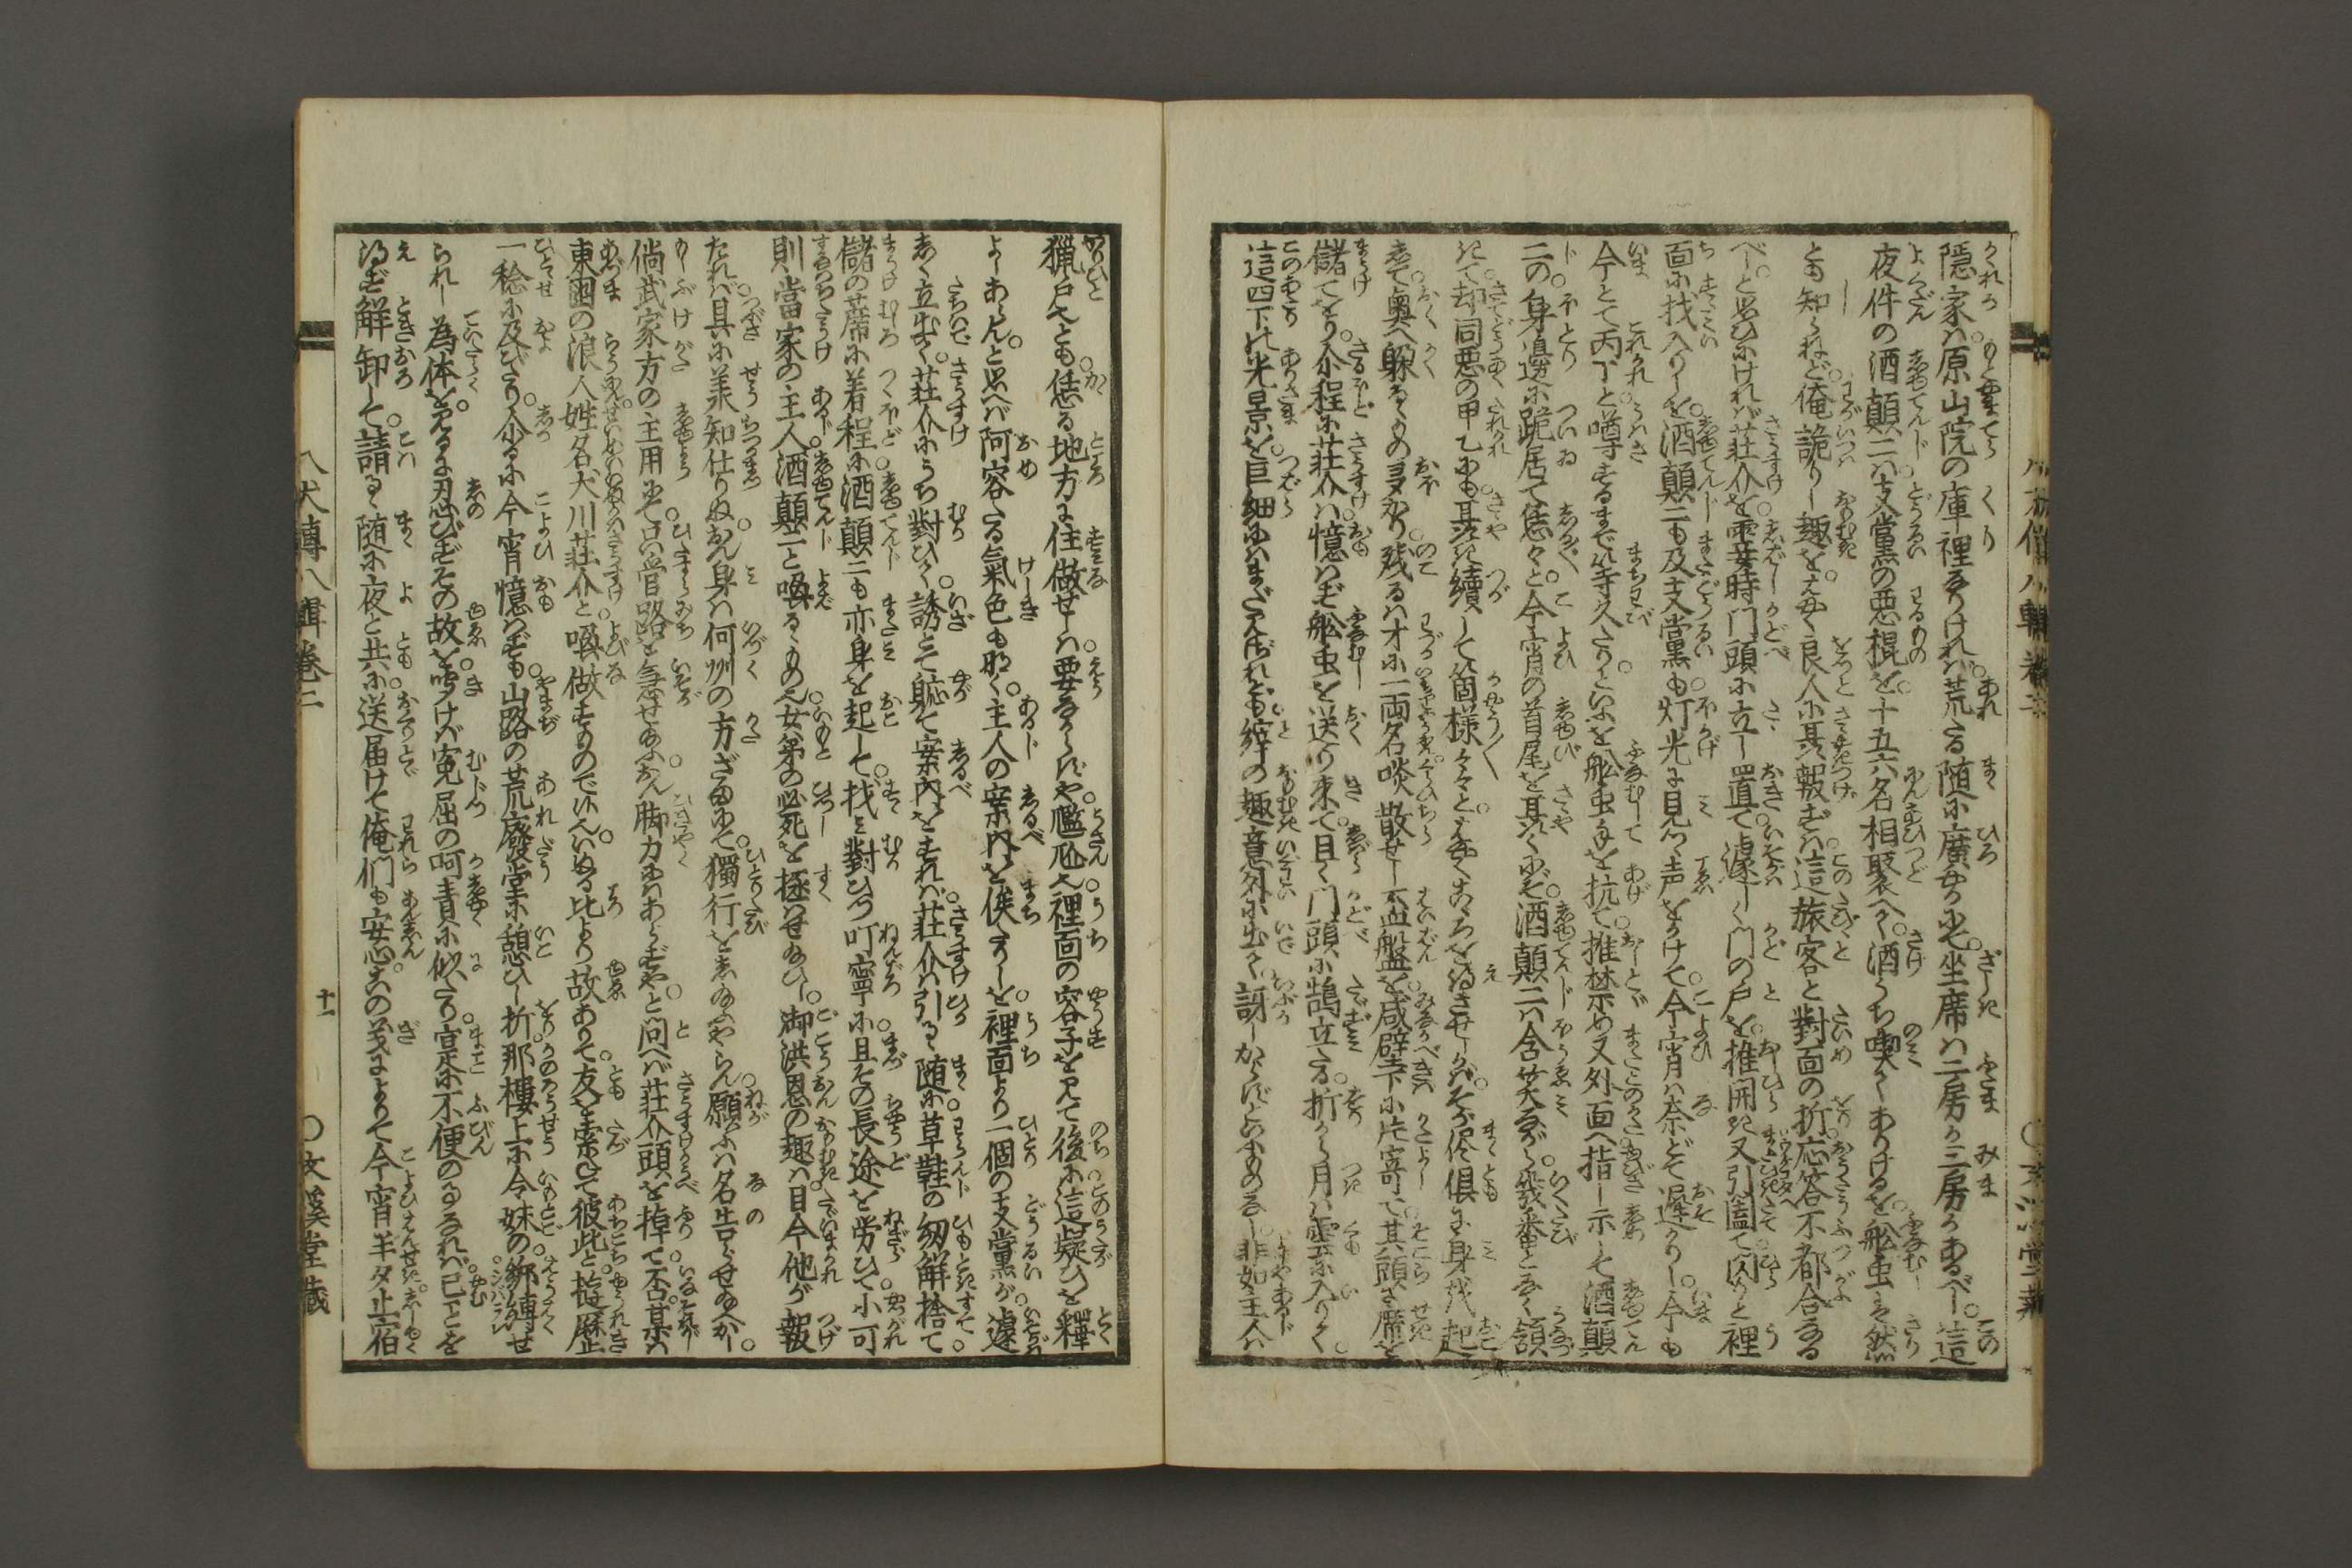 隠家は。原山院の庫裡なりければ。荒たる随に廣やかにて。坐席は二房か三房かあるべし。這
夜件の酒顛二は。支黨の悪棍を。十五六名相聚へて。酒うち喫てありけるを。舩虫は然
とも知らねど。俺詭りし趣を。え安く良人に其報ずは。這旅客と對面の折。応答不都合なる
べしと思ひにければ。荘介を霎時門頭に立し置て。遽しく門の戸を。推開き又引闔て。閃りと裡
面に找入りしを。酒顛二も及支黨も。灯光に見つゝ声をかけて。今宵は奈どて遅かりし。今も
今とて丙丁と。噂するまで等久たりといふを舩虫手を抗て。推禁め又外面へ指し示して。酒顛
二の身邊に跪居て恁々と。今宵の首尾を耳語くにぞ。酒顛二は含笑ながら。幾番となく頷
きて。却同悪の甲乙にも。耳語き續して。箇様々々と。
こゝろを得させしかば。そが侭俱に身を起
して。奥へ躱るゝもの多かり。残るは才に一両名。啖散せし杯盤を。咸壁下に片寄て。其頭を席を
儲てをり。介程に荘介は。憶はず舩虫を送り来て。且く門頭に鵠立たる。折から月は雲に入りて。
這四下の光景を。巨細にはまだ見ざれども。縡の趣意外に出て。訝しからずといふものなし。非如主人は
獵戸也とも。恁る地方に住做せしは。要あらずや尷尬也。裡面の容子を見て後に。這疑ひを釋
よしあらんと思へば。阿容たる氣色も那く。主人の案内を俟てをりしを。裡面より一個の支黨が。遽
しく立出て。荘介にうち對ひて。誘とて軈て案内をすれば。荘介は引るゝ随に。草鞋の紐解捨て。
儲の席に着程に。酒顛二も亦身を起して。找み對ひつ叮寧に。且その長途を労ひて。小可
則當家の主人。酒顛二と喚るゝもの也。女弟の必死を拯はせ給ひし。御洪恩の趣は。目今他が報
たれば。具に羕知仕りぬ。おん身は何州の方ざまにて。獨行をし給ふやらん。願ふは名告らせ給へかし。
倘武家方の主用にて。只管路を急せ給ふ。おん脚力にはあらずや。と問へば荘介頭を掉て。否某は
東國の浪人。姓名犬川荘介と。喚做すものでいへ。いぬる比より故ありて。友を索ねて彼此と遊歴
一稔に及びたり。介るに今宵憶はずも。山路の荒廢堂に憩ひし折。那樓上に令妹の。綁縛せ
られし為体を。見るに忍びずその故を。聞けば寃屈の呵責に似たり。寔に不便の事なれば。已ことを
得ず解卸して。請るゝ随に夜と共に。送届けて俺們も安心。この義によりて今宵羊夕。止宿
八犬傳八輯巻二
十一
○文溪堂藏